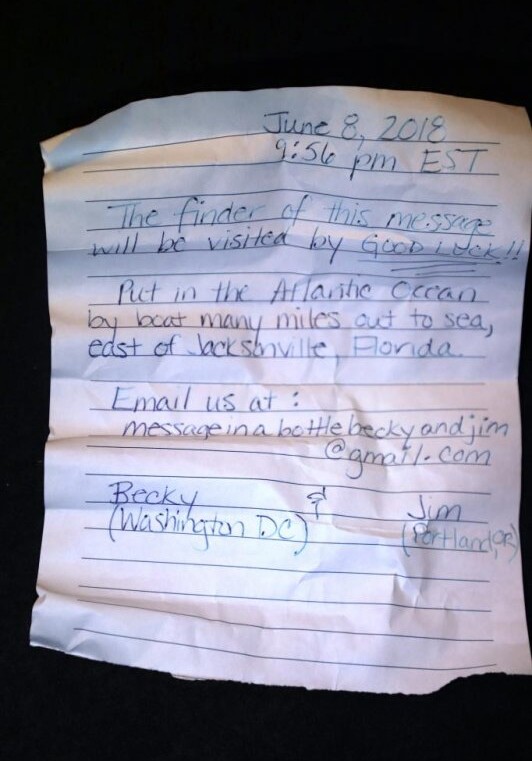 June 8, 2018
9:56 pm EST
The finder of this message
will be visited by GOOD LUCK!!
Put in the Atlantic Ocean
by boat many miles out to sea,
east of Jacksonville, Florida.
Email us at :
messageinabottlebeckyandjim
@gmail.com
Becky & Jim
(Washington DC) (Portland, OR)